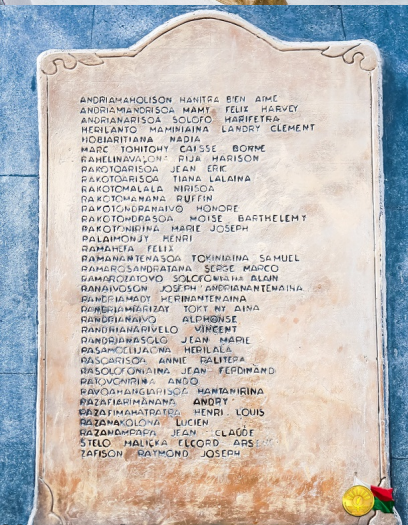 ANDRIAMAHOLISON HANITRA B'EN AIME
ANDRIAMIANDRISOA MAMY FELIX HARVEY
ANDRIANARISOA SOLOFO HARIFETRA
HERILANTO MAMINIAINA LANDRY CLEMENT
HOBIARITIANA NADIA
MARC TOHITOHY CAISSE BORNE
RIJA HARISON
RAKOTOARISOA JEAN ERIC
RAKOTOARISOA TIANA LALAINA
RAKOTOMALALA NIRISOA
RAKOTOMANANA RUFFIN
RAKOTONDRANAIVO HONORE
RAKOTONDRASOA MOISE BARTHELEMY
RAKOTONIRINA MARIE JOSEPH
PALAIMONJY HENRI
RAMAHEFA FELIX
RAMANANTENASOA TOKINIAINA SAMUEL
RAMAROSANDRATANA SERGE MARCO
RAMAROZATOVO SOLOFONIAINA ALAIN
RANAIVOSON JOSEPH ANDRIANANTENAINA
RANDRIAMADY HERINANTENAINA
RANDRIAMIARIZAY TOKY NY AINA
RANDRIANAIVO ALPHONSE
RANDRIANARIVELO VINCENT
RANDRIANASOLO JEAN MARIE
RASAMOELIJAONA HERILALA
RASOARISOA ANNIE RALITERA
RASOLOFONIAINA JEAN FERDINAND
RATOVONIRINA ANDO
RAVOAHANGIARISOA HANTANIRINA
RAZAFIARIMANANA ANDRY
RAZAFIMAHATRATRA HENRI LOUIS
RAZANAKOLONA LUCIEN
RAZANAMPARA JEAN CLAUDE
STELO MALICKA ELCORD
ZAFISON RAYMOND JOSEPH